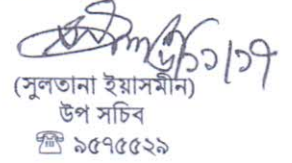 (সুলতানা ইয়াসমীন)
উপ সচিব
☎ ৯৫৭৫৫২৯